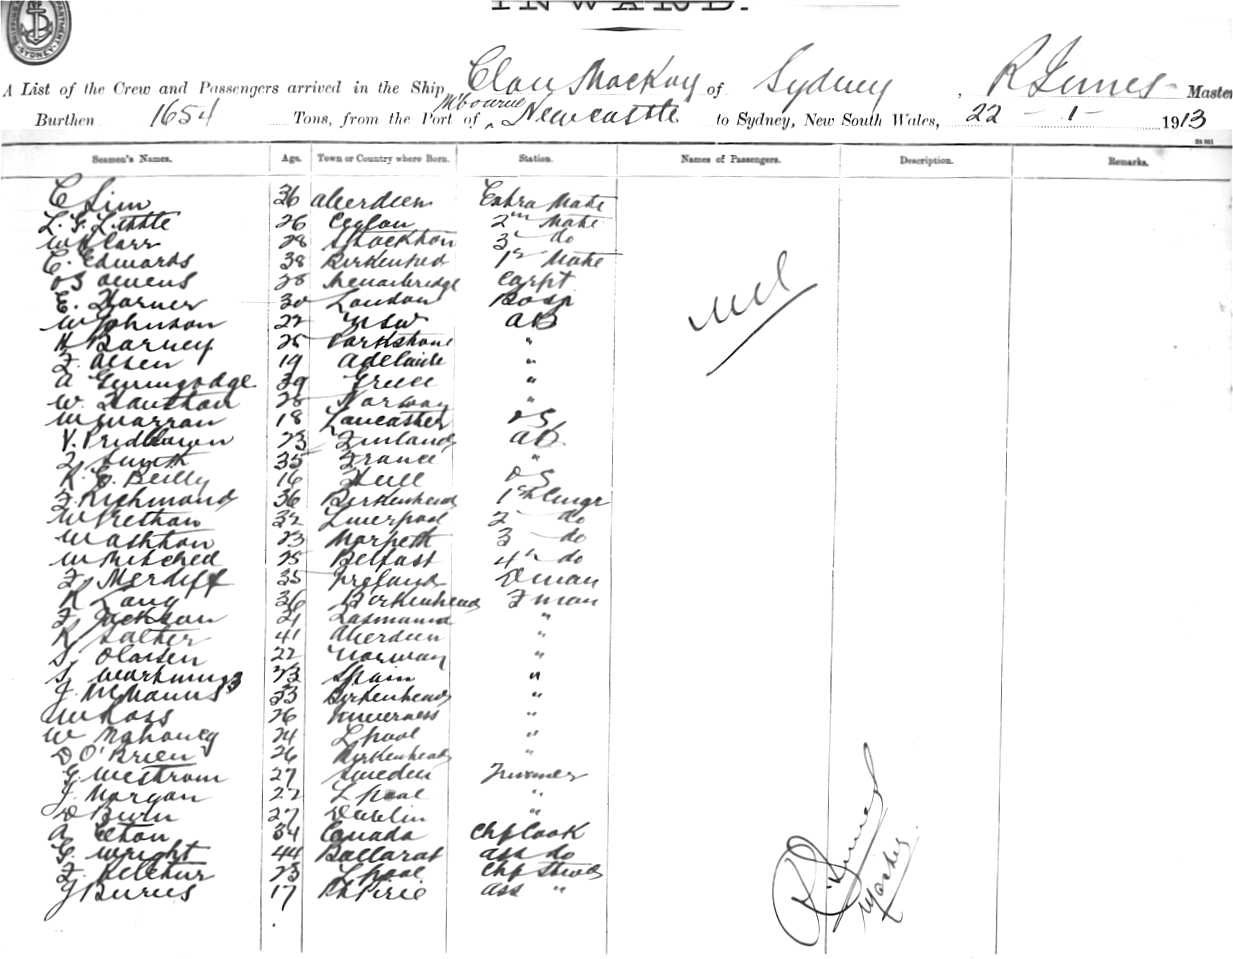 INWARD.
SYDNEY
A List of the Crew and Passengers arrived in the Ship Clan Mackay of Sydney, R Master
Burthen 1654 Tons, from the Port of Mbourne Newcastle to Sydney, New South Wales, 22 - 1 - 1913
Seamen's Names. Age. Town or Country where Born. Station. Names of Passengers. Description. Remarks.
C Sim 36 Aberdeen Extra Mate
L. G. Little 26 Ceylon 2nd Mate
W H Carr 28 Stockton 3 do
C. Edwards 38 Birkenhead 1st Mate
O S Owens 28 Menaibridge Carpt
E. Horner 30 London Bosn
W Johnson 22 NSW AB
H Barney 25 Parkstone "
F. Olsen 19 Adelaide "
A 39 Greece "
W. 28 Norway "
W Warran 18 Lancaster OS
V. 23 Finland AB
Smith 35 France "
R. E. Beilly 16 Hull OS
F. Richmond 36 Birkenhead 1st Engr
W Prethan 32 Liverpool 2 do
W Ashton 23 Morpeth 3 do
W Mitched 25 Belfast 4th do
F. Merdiff 35 Ireland Dman
R Lang 36 Birkenhead Fman
F. Jackson 21 Tasmania "
R Salter 41 Aberdeen "
S. Olansen 22 Norway "
S. 23 Spain "
J. McManus 33 Birkenhead "
W Ross 26 Inverness "
W Mahoney 24 Lpool "
D O'Brien 26 Birkenhead "
G. Westrom 27 Sweden Trimmer
J. Morgan 22 Lpool "
D Burn 27 Dublin "
A Elton 34 Canada Chf Cook
G. Wright 44 Ballarat Ass do
F. 23 Lpool Chf Stwd
J Burns 17 Pt Pirie Ass "
nil
R
Master